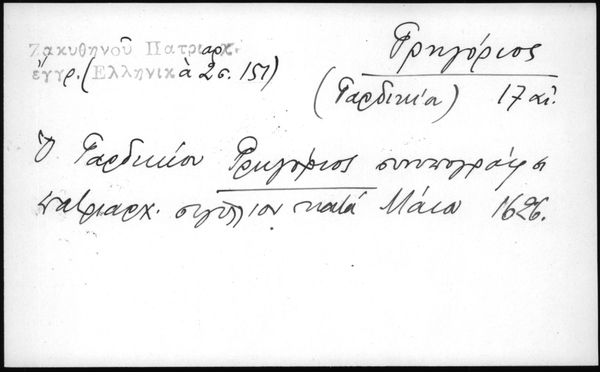 Ζακυθηνοῦ Πατριαρχ.
ἔγγρ. (Ἑλληνικὰ 2 σ. 151)
Γρηγόριος
(Γαρδικία) 17 αἰ.
Ὁ Γαρδικίου Γρηγόριος συνυπογράφει
πατριαρχ. σιγίλλιον κατά Μάιο 1626.